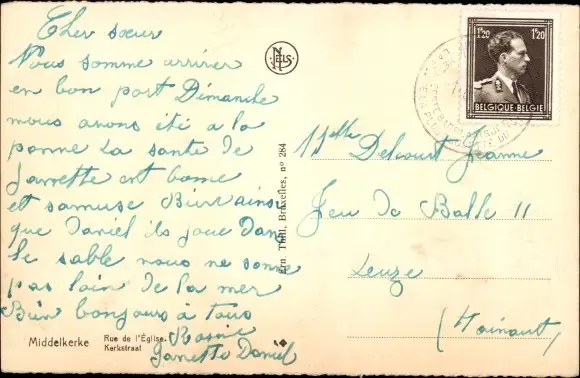 Cher sœur
Nous somme arriver
en bon port Dimanche
nous avons été a la
panne La sante de
Janette est bonne
et samuse Bien ainsi
que Daniel ils joue Dans
le sable nous ne somme
pas loin de la mer
Bien bonjours à tous
Janette Daniel
Middelkerke
Rue de l'Église.
Kerkstraat
NELS
Ern. Thill, Bruxelles, n° 284
1F20 1F20
BELGIQUE-BELGIE
Mlle Delcourt Jeanne
Jeu de Balle 11
Leuze
(Hainaut)